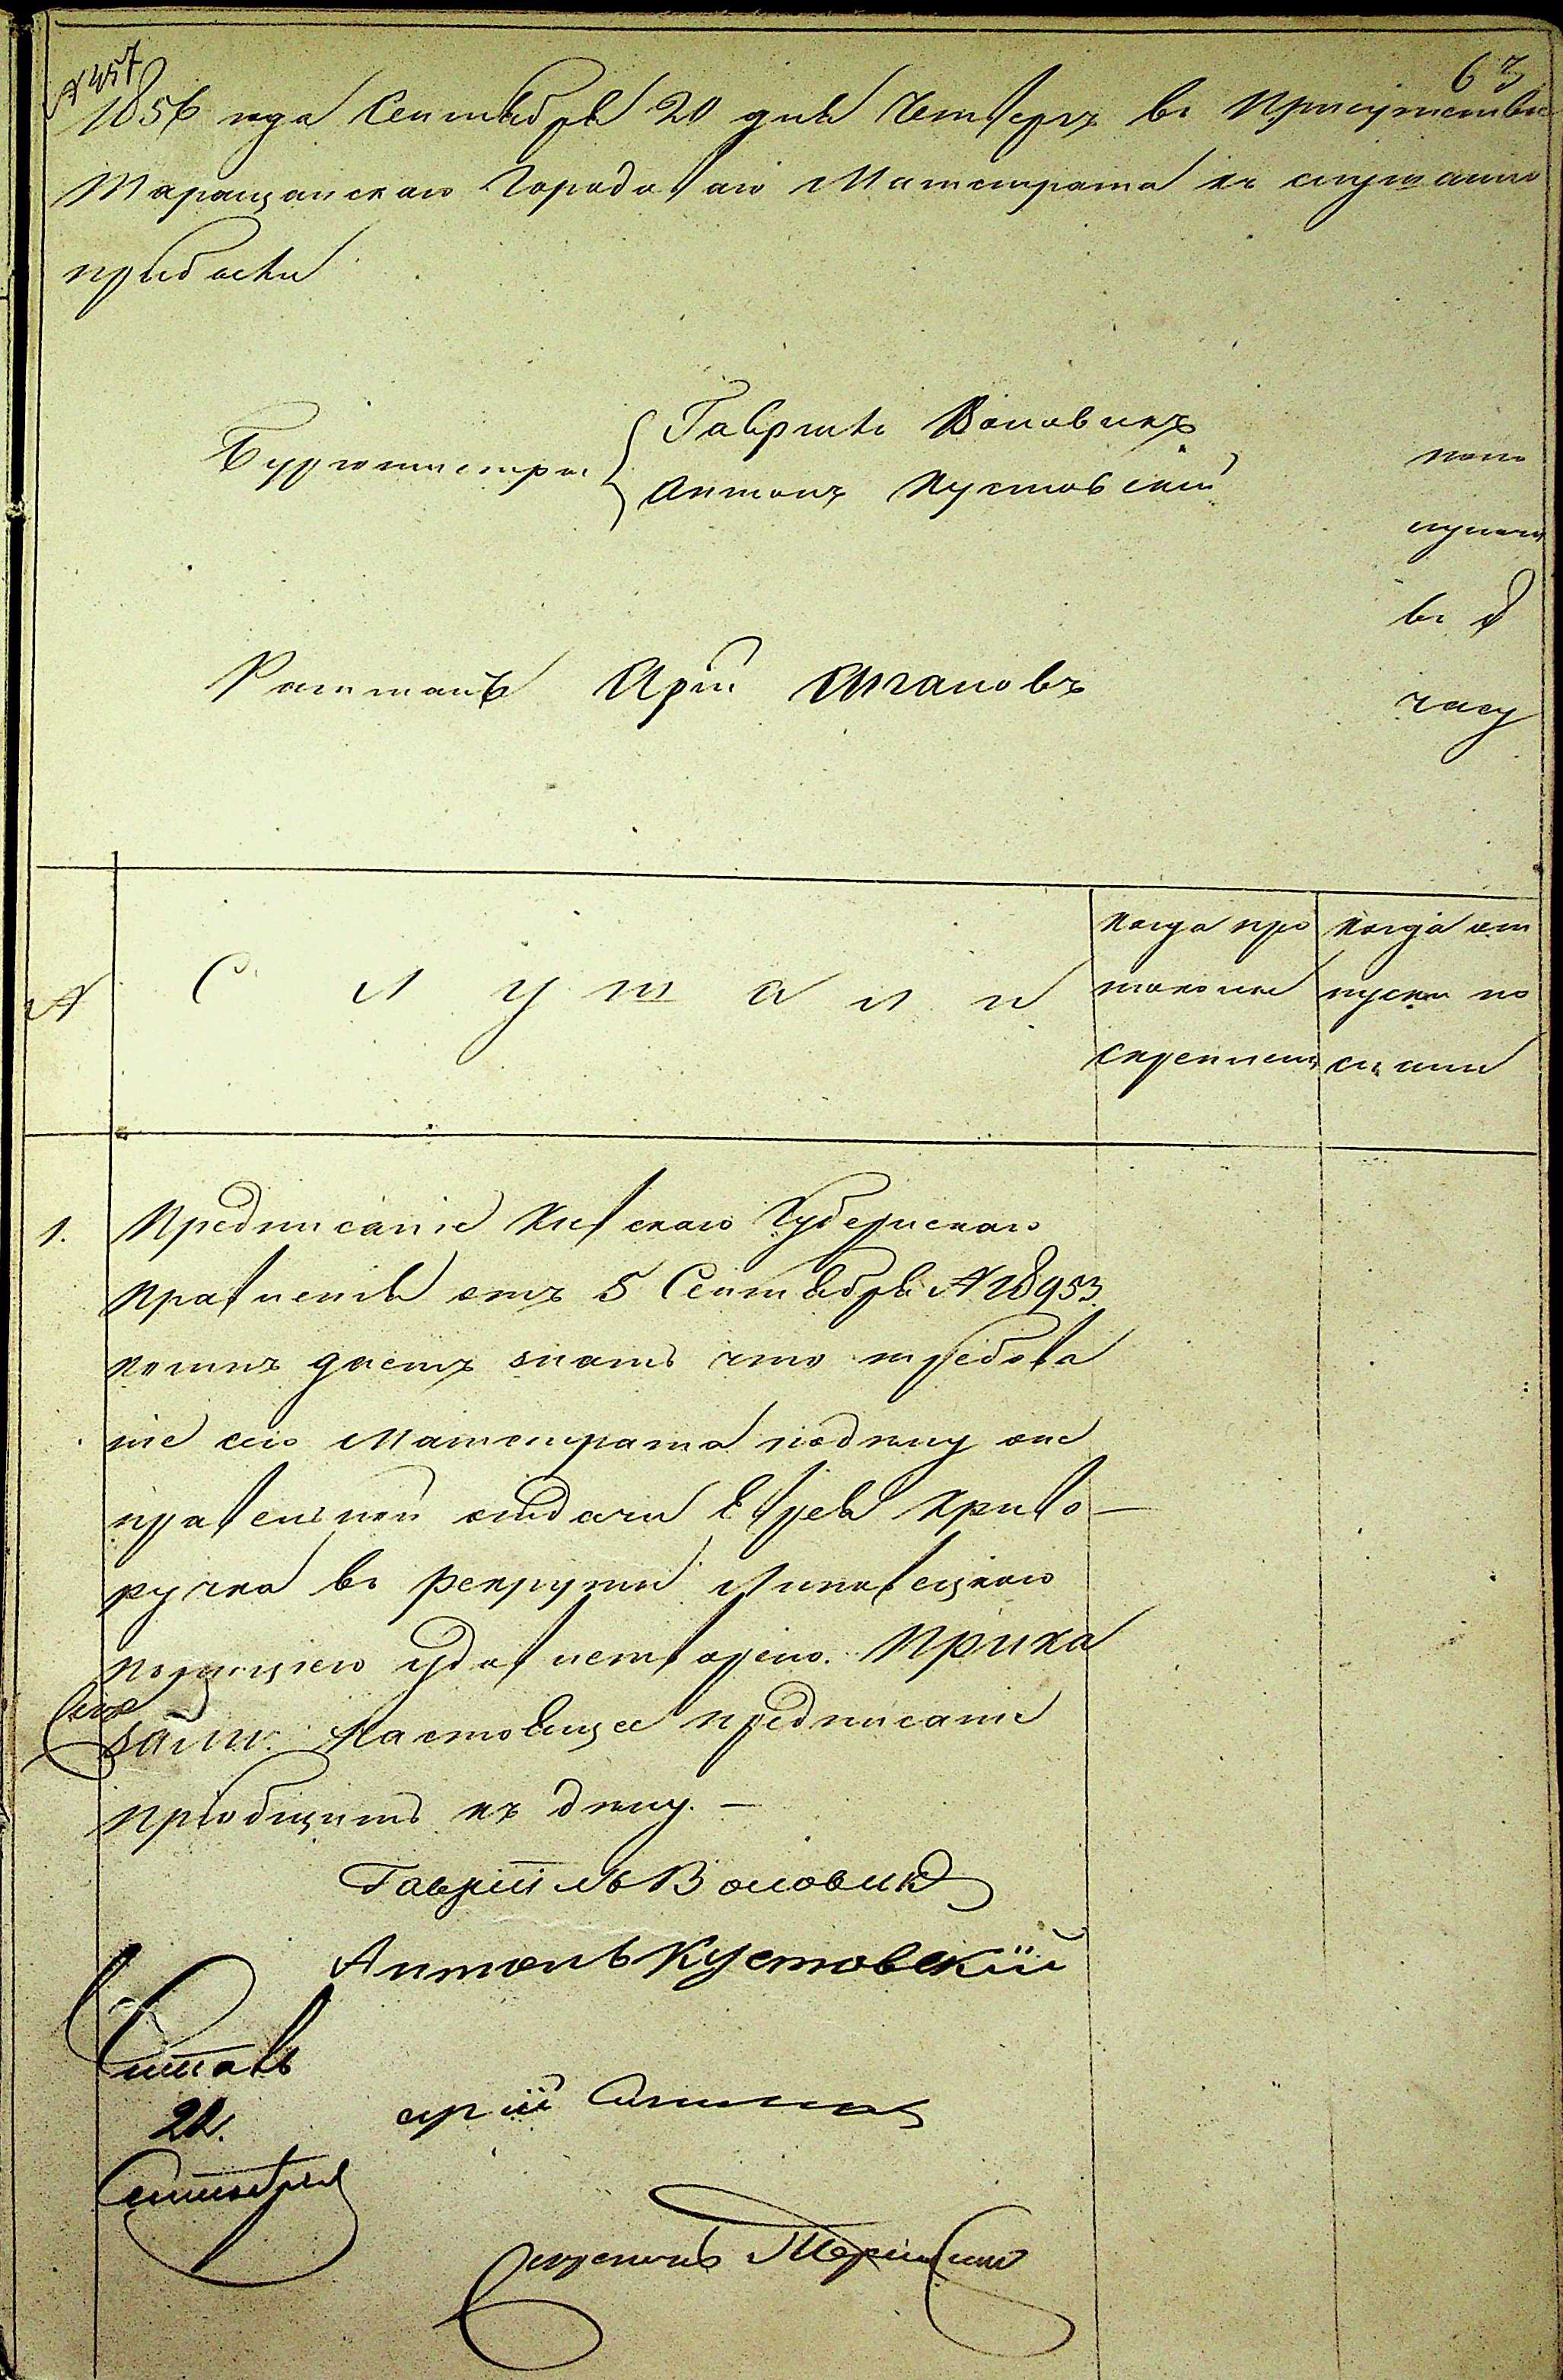 № 457
63
1856 года Сентября 20 дня Четвергъ въ Присутствіе
Таращанскаго Городоваго Магистрата къ слушанію
прибыли
Бургомистры
Гавріилъ Воловикъ
Антонъ Кустовскій
Ратманъ Арій
попо
лудни
въ
часу
№
Слушали
Когда про
токолы
скреплены
Когда от
пуски по
сланы
1. Предписаніе Кіевскаго Губернскаго
Правленія отъ 5 Сентября № 18953
коимъ даетъ знать что требова
ніе сего Магистрата по делу о не
правельной отдачи Еврея Криво-
ручка въ рекруты Липовецкою
полиціею удовлетворено. Прика
зали: Настоящее предписаніе
пріобщить къ делу. —
Гавріилъ Воловикъ
Антонъ Кустовскій
Арій
Читалъ
22.
Сентября
Секретарь